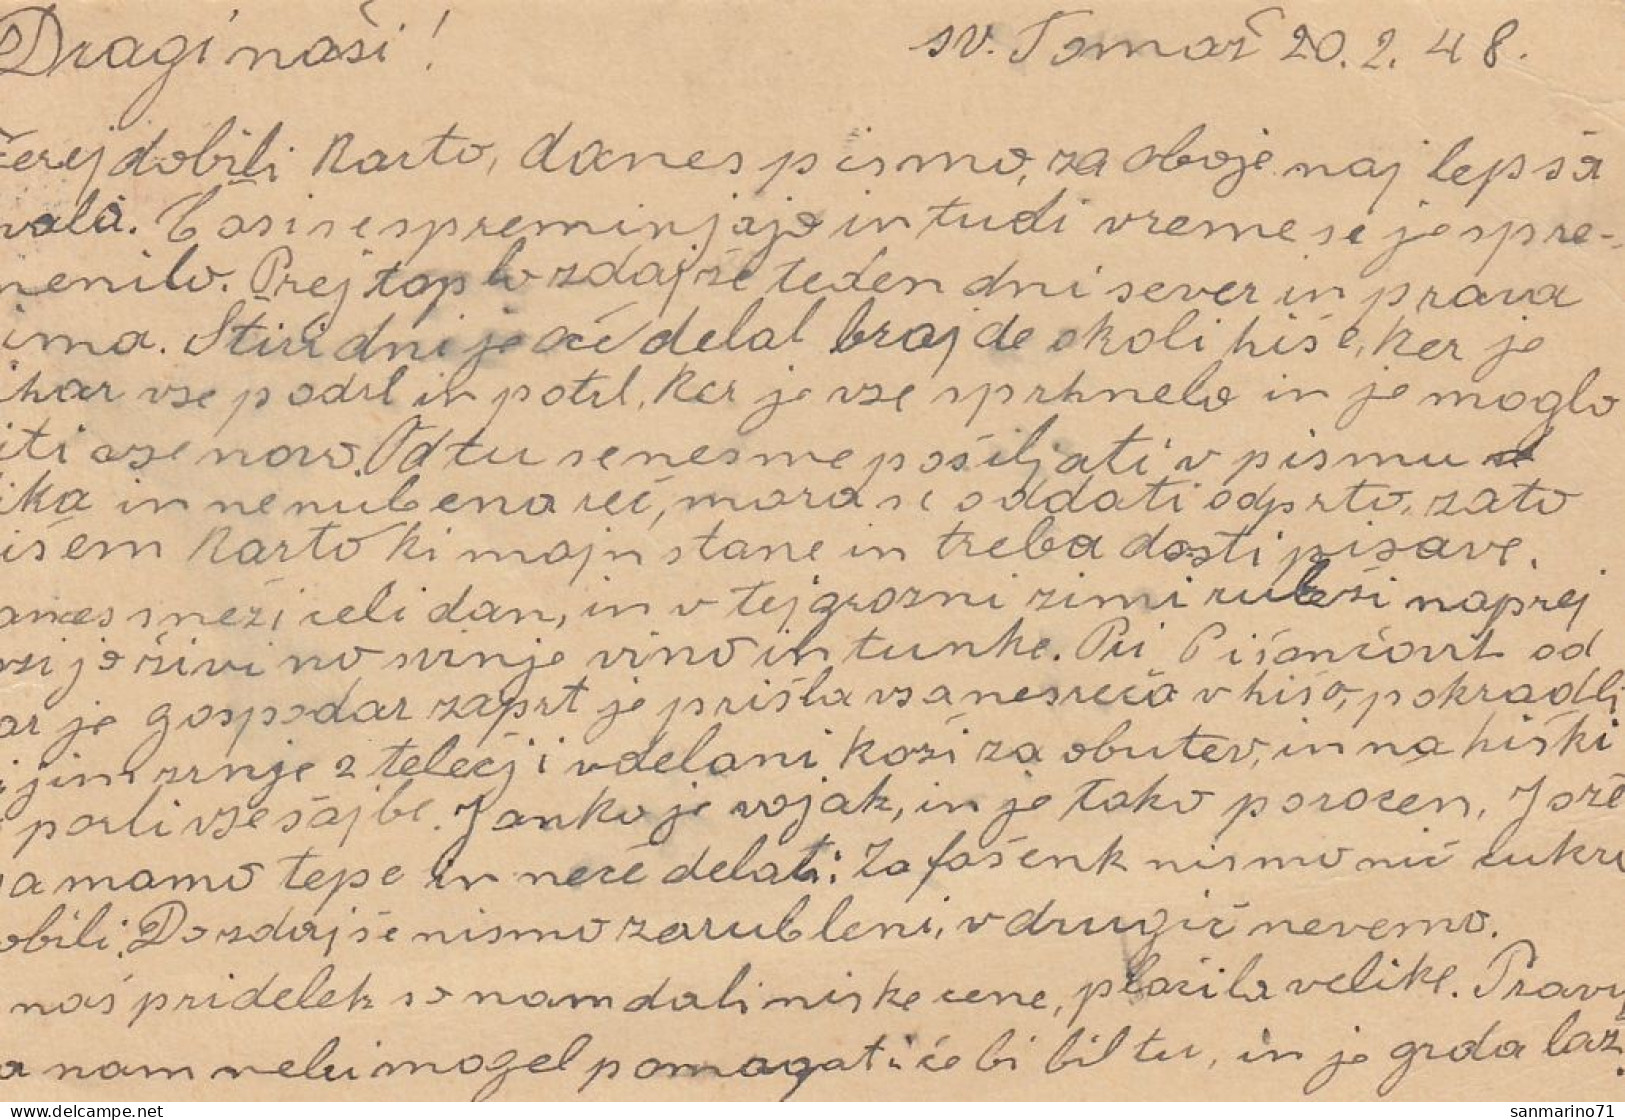 Dragi naši! sv. Tomaž 20.2.48.
čerej dobili karto, danes pismo, za oboje najlepša
vala. Časi se spreminjajo in tudi vreme se je spre-
menilo. Prej toplo zdaj že teden dni sever in prava
ima. Štiri dni je oče delal brajde okoli hiše, ker je
ihar vse podrl in potrl, ker je vse sprhnelo in je moglo
iti vse novo. Od tu se nesme pošiljati v pismu
ika in nenubena reč, mora se oddati odprto, zato
išem karto ki majn stane in treba dosti pisave.
anes sneži celi dan, in v tej grozni zimi rubeži naprej
ozijo živino svinje vino in tunke. Pri Pišančovih od
ar je gospodar zaprt je prišla vsa nesreča v hišo, pokradli
jim zrnje 2 telečji vdelani koži za obutev, in na hiški
porli vse šajbe. Janko je vojak, in je tako poročen, Jože
pa mamo tepe in neče delati. Za fašenk nismo nič cukra
obili. Do zdaj še nismo zarubleni, v drugič nevemo.
naš pridelek so nam dali niske cene, plačila velike. Pravij
a nam nebi mogel pomagati če bi bil tu, in je grda laž.
delcampe.net sanmarino71